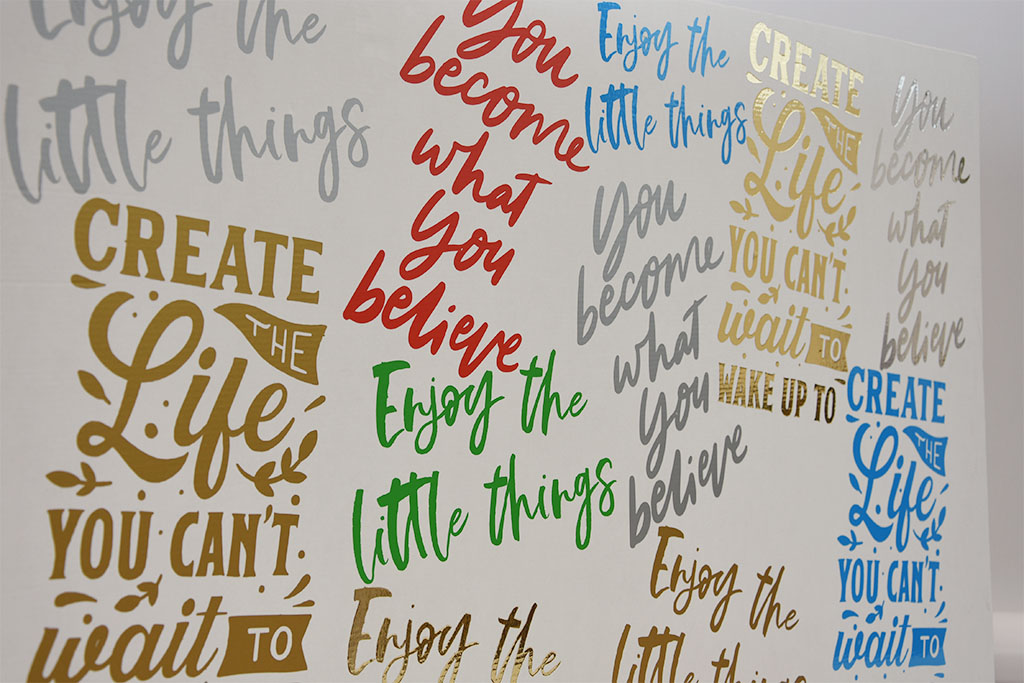 Enjoy the
little things
You
become
what
you
believe
Enjoy the
little things
CREATE
THE
Life
YOU CAN'T
wait TO
WAKE UP TO
You
become
what
you
believe
CREATE
THE
Life
YOU CAN'T
wait TO
You
become
what
you
believe
Enjoy the
little things
CREATE
THE
Life
YOU CAN'T
wait TO
Enjoy the
Enjoy the
little things